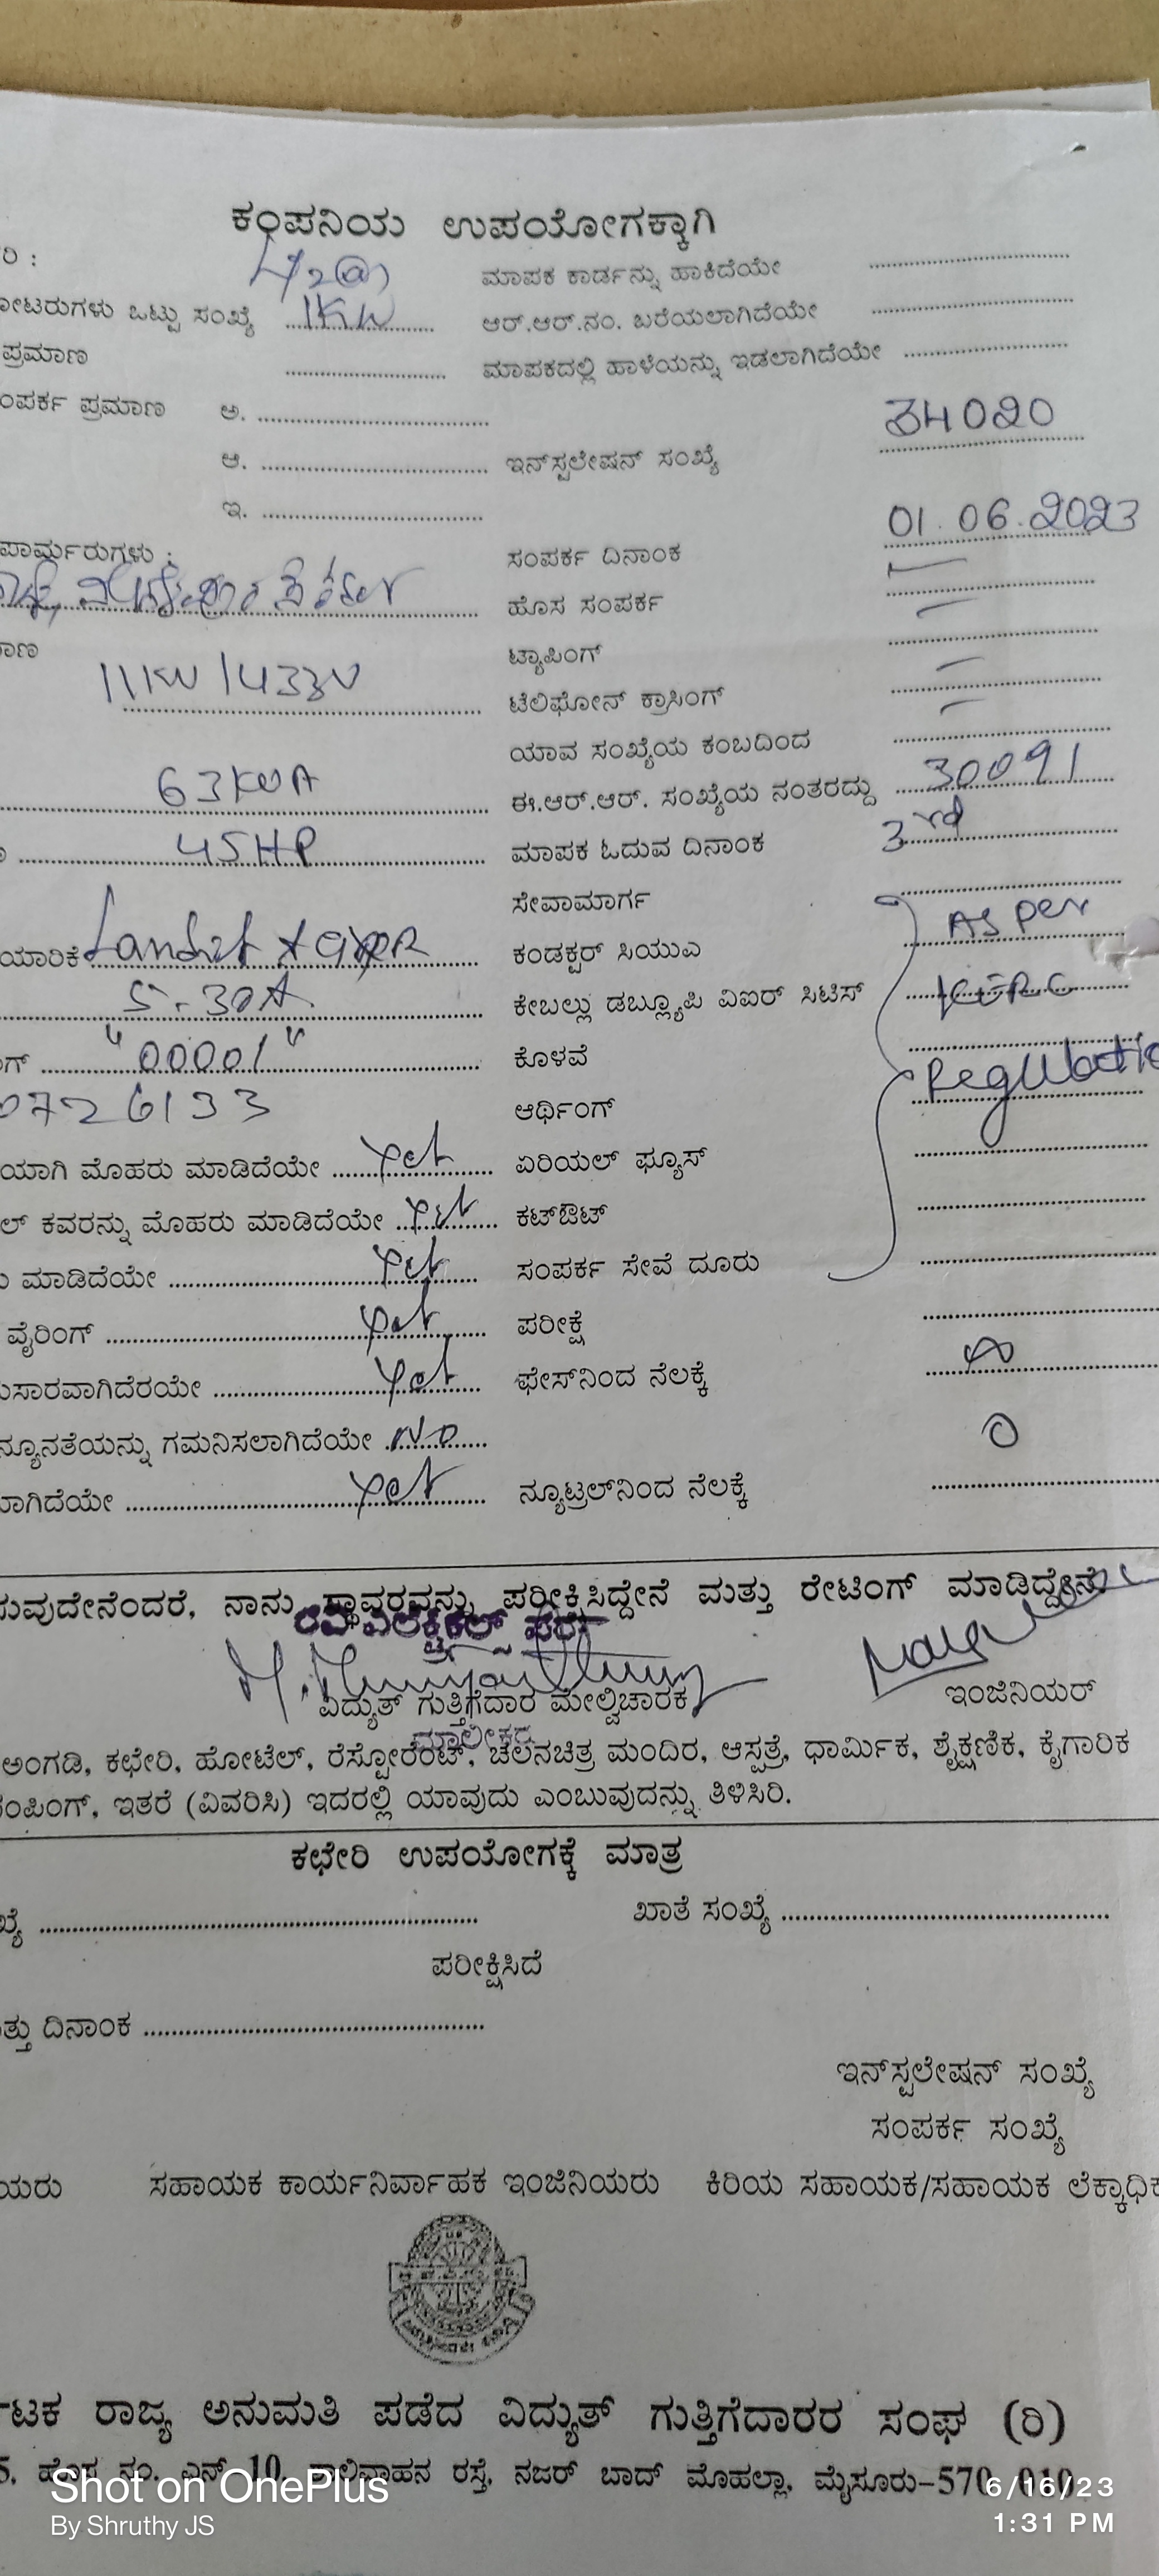 ಕಂಪನಿಯ ಉಪಯೋಗಕ್ಕಾಗಿ
ರಿ : ಮಾಪಕ ಕಾರ್ಡನ್ನು ಹಾಕಿದೆಯೇ
ೋಟರುಗಳು ಒಟ್ಟು ಸಂಖ್ಯೆ 1KW ಆರ್.ಆರ್.ನಂ. ಬರೆಯಲಾಗಿದೆಯೇ
ಪ್ರಮಾಣ ಮಾಪಕದಲ್ಲಿ ಹಾಳೆಯನ್ನು ಇಡಲಾಗಿದೆಯೇ
ಂಪರ್ಕ ಪ್ರಮಾಣ ಅ.
ಆ. ಇನ್‌ಸ್ಟಲೇಷನ್ ಸಂಖ್ಯೆ 34020
ಇ.
ಪಾರ್ಮರುಗಳು : ಸಂಪರ್ಕ ದಿನಾಂಕ 01.06.2023
ಹೊಸ ಸಂಪರ್ಕ
ಾಣ ಟ್ಯಾಪಿಂಗ್
11KV/433V ಟೆಲಿಫೋನ್ ಕ್ರಾಸಿಂಗ್
ಯಾವ ಸಂಖ್ಯೆಯ ಕಂಬದಿಂದ
63KVA ಈ.ಆರ್.ಆರ್. ಸಂಖ್ಯೆಯ ನಂತರದ್ದು 30091
45HP ಮಾಪಕ ಓದುವ ದಿನಾಂಕ 3rd
ಸೇವಾಮಾರ್ಗ
ಯಾರಿಕೆ ಕಂಡಕ್ಟರ್ ಸಿಯುಎ As per
5-30A ಕೇಬಲ್ಲು ಡಬ್ಲ್ಯೂಪಿ ವಿಐಆರ್ ಸಿಟಿಸ್ KERC
ಗ್ "00001" ಕೊಳವೆ
0726133 ಆರ್ಥಿಂಗ್ Regulatio
ಯಾಗಿ ಮೊಹರು ಮಾಡಿದೆಯೇ Yes ಏರಿಯಲ್ ಫ್ಯೂಸ್
ಲ್ ಕವರನ್ನು ಮೊಹರು ಮಾಡಿದೆಯೇ Yes ಕಟ್‌ಔಟ್
ು ಮಾಡಿದೆಯೇ Yes ಸಂಪರ್ಕ ಸೇವೆ ದೂರು
ವೈರಿಂಗ್ Yes ಪರೀಕ್ಷೆ
ುಸಾರವಾಗಿದೆರಯೇ Yes ಫೇಸ್‌ನಿಂದ ನೆಲಕ್ಕೆ ∞
ನ್ಯೂನತೆಯನ್ನು ಗಮನಿಸಲಾಗಿದೆಯೇ No
ಾಗಿದೆಯೇ Yes ನ್ಯೂಟ್ರಲ್‌ನಿಂದ ನೆಲಕ್ಕೆ 0
ುವುದೇನೆಂದರೆ, ನಾನು ಸ್ಥಾವರವನ್ನು ಪರೀಕ್ಷಿಸಿದ್ದೇನೆ ಮತ್ತು ರೇಟಿಂಗ್ ಮಾಡಿದ್ದೇನೆ
ವಿದ್ಯುತ್ ಗುತ್ತಿಗೆದಾರ ಮೇಲ್ವಿಚಾರಕ ಇಂಜಿನಿಯರ್
ಮಾಲೀಕರು
ಅಂಗಡಿ, ಕಛೇರಿ, ಹೋಟೆಲ್, ರೆಸ್ಟೋರೆಂಟ್, ಚಲನಚಿತ್ರ ಮಂದಿರ, ಆಸ್ಪತ್ರೆ, ಧಾರ್ಮಿಕ, ಶೈಕ್ಷಣಿಕ, ಕೈಗಾರಿಕ
ಂಪಿಂಗ್, ಇತರೆ (ವಿವರಿಸಿ) ಇದರಲ್ಲಿ ಯಾವುದು ಎಂಬುವುದನ್ನು ತಿಳಿಸಿರಿ.
ಕಛೇರಿ ಉಪಯೋಗಕ್ಕೆ ಮಾತ್ರ
ಖ್ಯೆ ಖಾತೆ ಸಂಖ್ಯೆ
ಪರೀಕ್ಷಿಸಿದೆ
ತ್ತು ದಿನಾಂಕ
ಇನ್‌ಸ್ಟಲೇಷನ್ ಸಂಖ್ಯೆ
ಸಂಪರ್ಕ ಸಂಖ್ಯೆ
ಯರು ಸಹಾಯಕ ಕಾರ್ಯನಿರ್ವಾಹಕ ಇಂಜಿನಿಯರು ಕಿರಿಯ ಸಹಾಯಕ/ಸಹಾಯಕ ಲೆಕ್ಕಾಧಿಕ
ಟಕ ರಾಜ್ಯ ಅನುಮತಿ ಪಡೆದ ವಿದ್ಯುತ್ ಗುತ್ತಿಗೆದಾರರ ಸಂಘ (ರಿ)
5, ಹೊಸ ನಂ. ಎನ್ 10, ಶಾಲಿವಾಹನ ರಸ್ತೆ, ನಜರ್ ಬಾದ್ ಮೊಹಲ್ಲಾ, ಮೈಸೂರು-570 010.
Shot on OnePlus
By Shruthy JS
6/16/23
1:31 PM